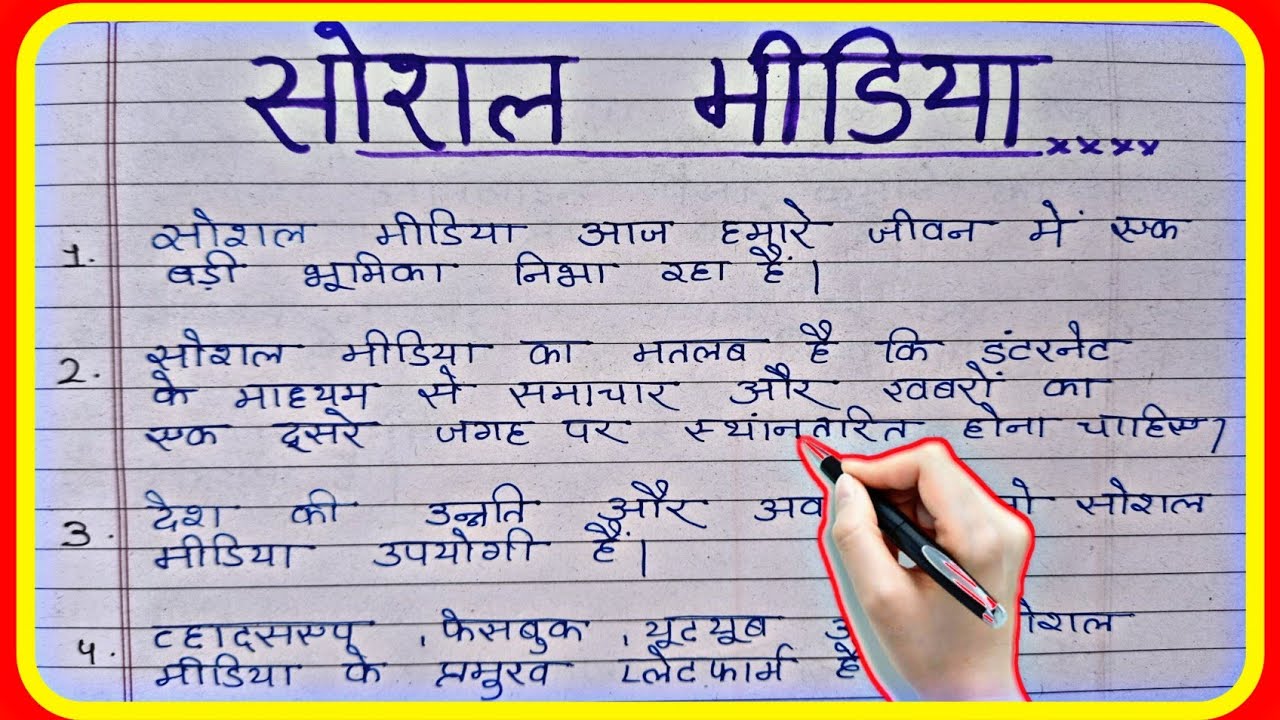 सोशल मीडिया
1. सोशल मीडिया आज हमारे जीवन में एक
बड़ी भूमिका निभा रहा हैं।
2. सोशल मीडिया का मतलब है कि इंटरनेट
के माध्यम से समाचार और खबरों का
एक दूसरे जगह पर स्थांनतरित होना चाहिए।
3. देश की उन्नति और सोशल
मीडिया उपयोगी हैं।
4. व्हादसएप , फेसबुक , यूटयूब
मीडिया के प्रमुख प्लेटफार्म